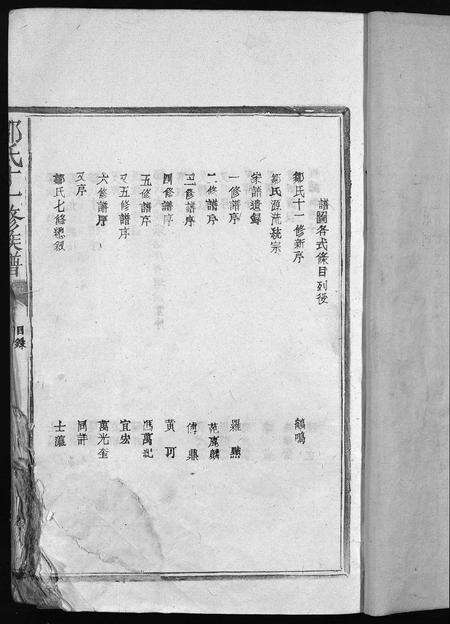 譜圖各式條目列後
鄒氏十一修新序 鶴鳴
鄒氏源流統宗
宋譜遺録
一修譜序
二修譜序 范應麟
三修譜序 傅鼎
四修譜序 黃可
五修譜序 馮萬記
又五修譜序 宜宏
六修譜序 萬光奎
又序
鄒氏七修總叙
鄒氏十一修族譜
目錄